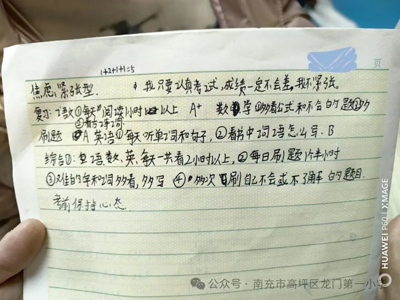 1+2+1+1=5
页
焦虑,紧张型. * 我只要认真考试,成绩一定不会差,我不紧张。
复习:语数①每天阅读1小时以上 A+ 数学①多看公式和不会的题②多
刷题 A 英语①每天听单词和句子,②看书中词语怎么写.B
综合①:复语数,英,每天一共看2小时以上,②每日刷题1小时
的字和词多看,多写 ④多次刷自己不会或不了解的题目.
考前保持心态
公众号·南充市高坪区龙门第一小学
HUAWEI P60 | XMAGE